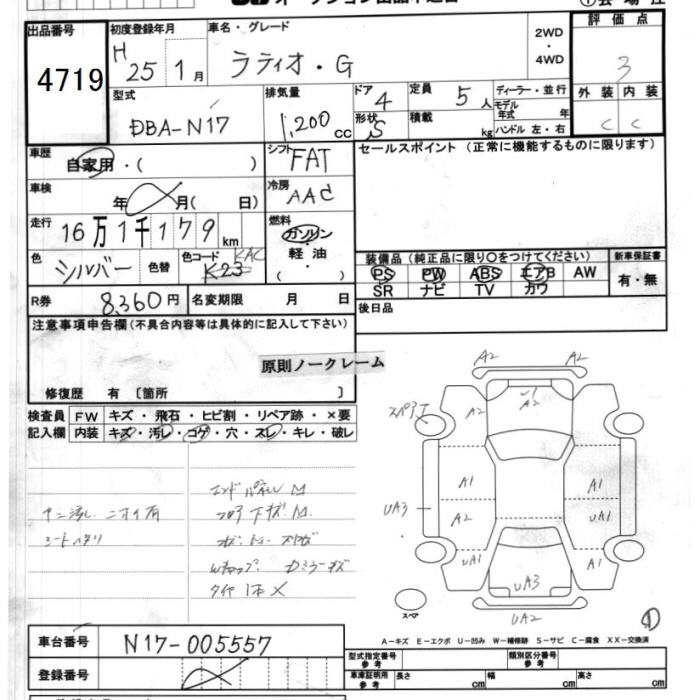 出品番号
4719
初度登録年月
H 25 1月
車名・グレード
ラティオ・G
2WD
・
4WD
評価点
3
外装 内装
C C
型式
DBA-N17
排気量
1,200 cc
ドア
4
形状
S
定員
5人
積載
kg
ディーラー・並行
モデル年式 年
ハンドル 左・右
車歴
自家用・( )
シフト
FAT
セールスポイント (正常に機能するものに限ります)
車検
年 月( 日)
冷房
AAC
走行
16万1千179km
燃料
ガソリン
・
軽油
・
( )
色
シルバー
色替
色コード
KAC
K23
装備品 (純正品に限り○をつけてください)
PS PW ABS エアB AW
SR ナビ TV カワ
新車保証書
有・無
R券
8360円
名変期限 月 日
後日品
注意事項申告欄 (不具合内容等は具体的に記入して下さい)
原則ノークレーム
修復歴 有 〔箇所 〕
検査員
記入欄
FW キズ・飛石・ヒビ割・リペア跡・×要
内装 キズ・汚レ・コゲ・穴・スレ・キレ・破レ
ニオイ有
タイヤ1本×
A2 A2
A2 U1 A2 A2
スペアT
UA3
A1 A1
A2 UA1
UA1 A1
UA3
UA2
スペア
A-キズ E-エクボ U-凹み W-補修跡 S-サビ C-腐食 XX-交換済
車台番号
N17-005557
登録番号
型式指定番号
参考
類別区分番号
参考
車庫証明用
参考
長さ cm
幅 cm
高さ cm